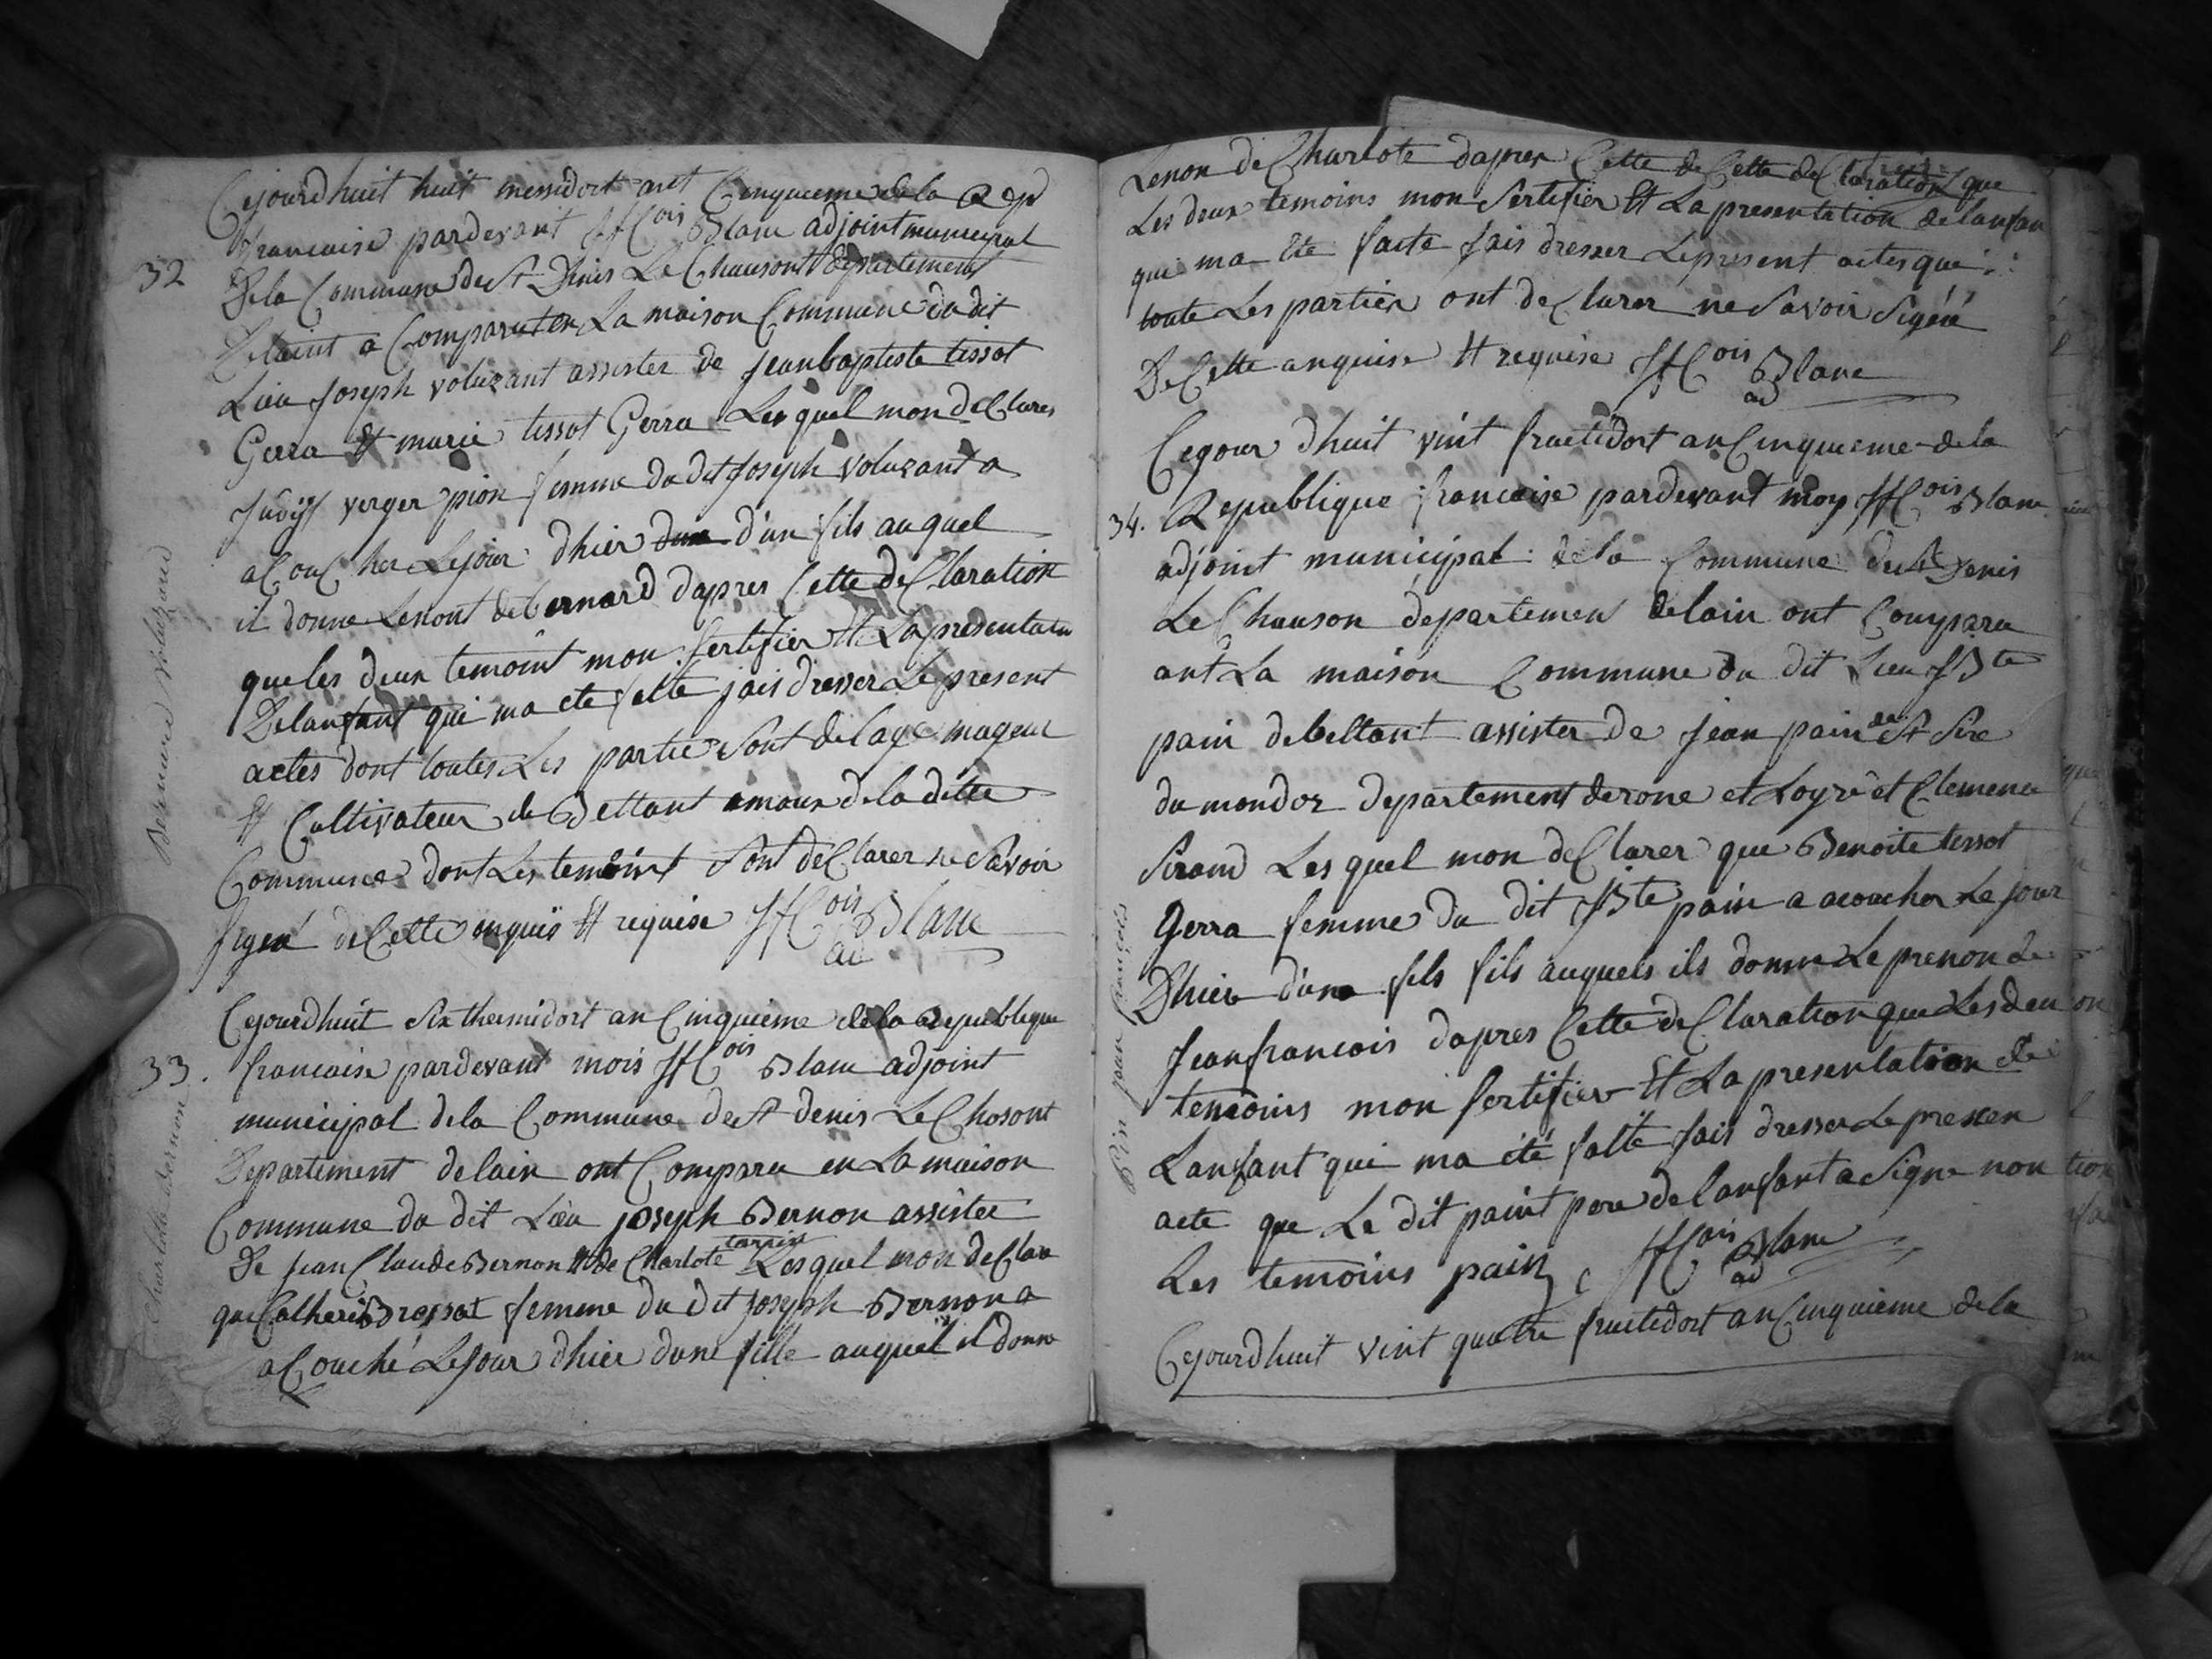 Cejourdhuit huit messidort ant Cinquieme de la Rep
francaise pardevant JfCois Blanc adjoint municipal
32
De la Commune de St Dhnis Le Chausont departement
Delaint a Comparut en La maison Commune du dit
Lieu Joseph voluzant assister de jeanbaptiste tissot
Gerra Et marie tissot Gerra Les quel mon deClarer
verger pion femme du dit Joseph voluzant a
aCouCher Lejour dhier d'un fils auquel
il donne Lenont de bernard dapres Cette deClaration
que les deux temoint mon sertifier Et La presentation
Delanfant qui ma ete fette jais dresser Le present
actes dont toutes Les partie sont delage mageur
Et Cultivateur de Bettant amaux dela ditte
Commune dont Les temoint sont deClarer ne Savoir
signé de Cette enquis Et requise JfCois Blanc
ad
Bernard Voluzand
Cejourdhuit six thermidort an Cinquieme dela Republique
33.
francaise pardevant mois JfCois Blanc adjoint
municipal dela Commune de St denis Le Chosont
Departement delain ont Comparu en La maison
Commune du dit Lieu joseph Bernon assister
De jean Claude Bernon Et de Charlote tarpin Lesquel mon deClare
que Catheri Brossat femme du dit joseph Bernon a
aCouché Lejour dhier dune fille auquel il donne
Charlotte Bernon
Lenon de Charlote dapres Cette de Cette deClaration que
Les deux temoins mon Sertifier Et La presentation delanfan
qui ma ete faite fais dresser Lepresent actes que
toute Les parties ont deClarer ne Savoir Signé
De Cette anquise Et requise JfCois Blanc
ad
Cejour dhuit vint fructidort an Cinquieme dela
34.
Republique francaise pardevant moy JfCois Blanc
adjoint municipal dela Commune de St Denis
Le Chauson departemen delain ont Comparu
ant La maison Commune du dit Lieu JBte
pain debettant assister de jean pain de St Sire
du mondor departement derone et Loyre et Clemence
Sirand Les quel mon deClarer que Benoite tissot
gerra femme du dit JBte pain a acoucher Le jour
Dhier d'une fils fils auquels ils donne Le prenon de
jeanfrancois dapres Cette deClaration que Les deu
temoins mon sertifier Et La presentation de
Lanfant qui ma été faitte fais dresser Le presen
acte que Le dit paint pere de lanfant a Signe non
Les temoins pain JfCois Blanc
ad
Pin jean françois
Cejourdhuit vint quatre fructidort an Cinquieme dela